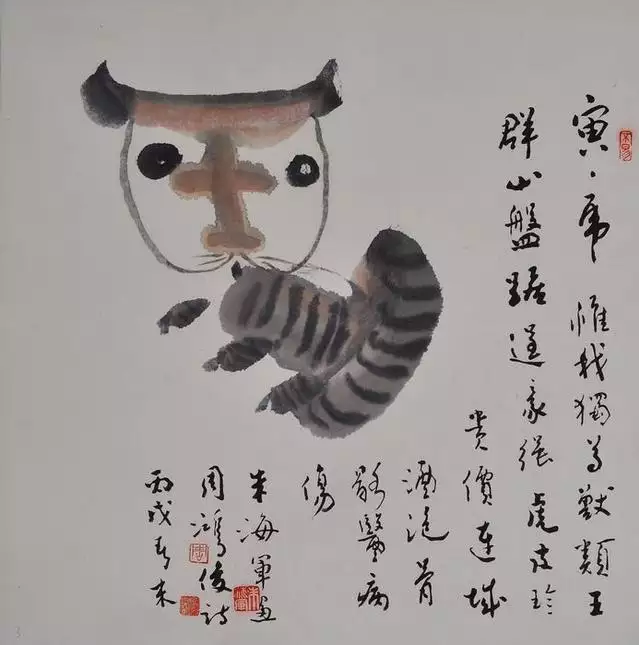 寅、虎 惟我獨尊獸類王
群山盤踞逞豪強 虎皮珍
貴價連城
酒泡骨
能醫病
傷
朱海軍畫
周鴻俊詩
丙戌春末
3